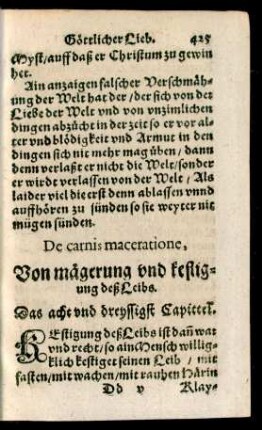 Göttlicher Lieb. 425
Myst/auff daß er Christum zu gewin
net.
Ain anzaigen falscher Verschmäh-
ung der Welt hat der/der sich von der
Liebe der Welt vnd von vnzimlichen
dingen abzücht in der zeit so er vor al-
ter vnd blödigkeit vnd Armut in den
dingen sich nit mehr mag üben/dann
denn verlaßt er nicht die Welt/sonder
er wirdt verlassen von der Welt/Als
laider viel die erst denn ablassen vnnd
auffhören zu sünden so sie weyter nit
mügen sünden.
De carnis maceratione,
Von mägerung vnd kestig-
ung deß Leibs.
Das acht vnd dreyssigst Capittel.
KEstigung deß Leibs ist dañ war
vnd recht/so ain Mensch willig-
klich kestiget seinen Leib/mit
fasten/mit wachen/mit rauhen Härin
Dd v Klay-